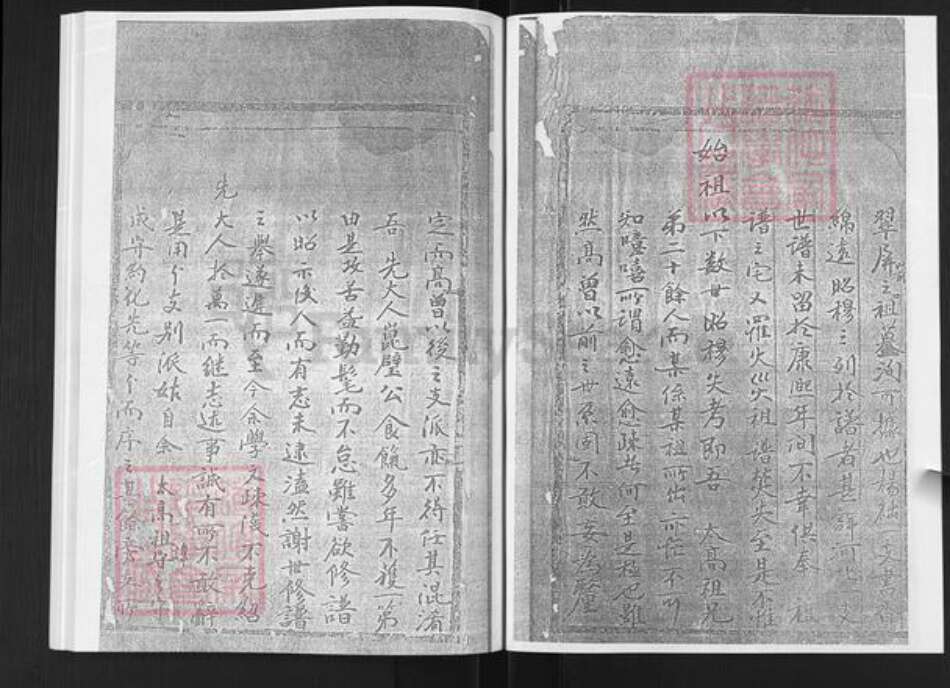 翠屏之祖墓洵可據也楊
綿遠昭穆之列於譜者甚詳
世譜未留於康熙年間不幸
譜之宅又罹火災祖譜焚失至是
始祖以下数世昭穆失考即吾 太高祖兄
弟二十餘人而某係某祖所出亦在不可
知噫嘻所謂愈遠愈疎者何至是極也雖
然高曾以前之世系固不敢妄為釐
定而高曾以後之支派亦不得任其混淆
吾 先大人崑璧公食餼多年不獲一第
由是攻苦益勤髦而不怠雖嘗欲修譜
以昭示後人而有志未逮溘然謝世修譜
之舉遂遲而至今余學又疎淺不克紹
先大人於萬一而继志述事誠有所不敢辭
是用分支别派姑自余 太高祖
成宇約化先等分而序之